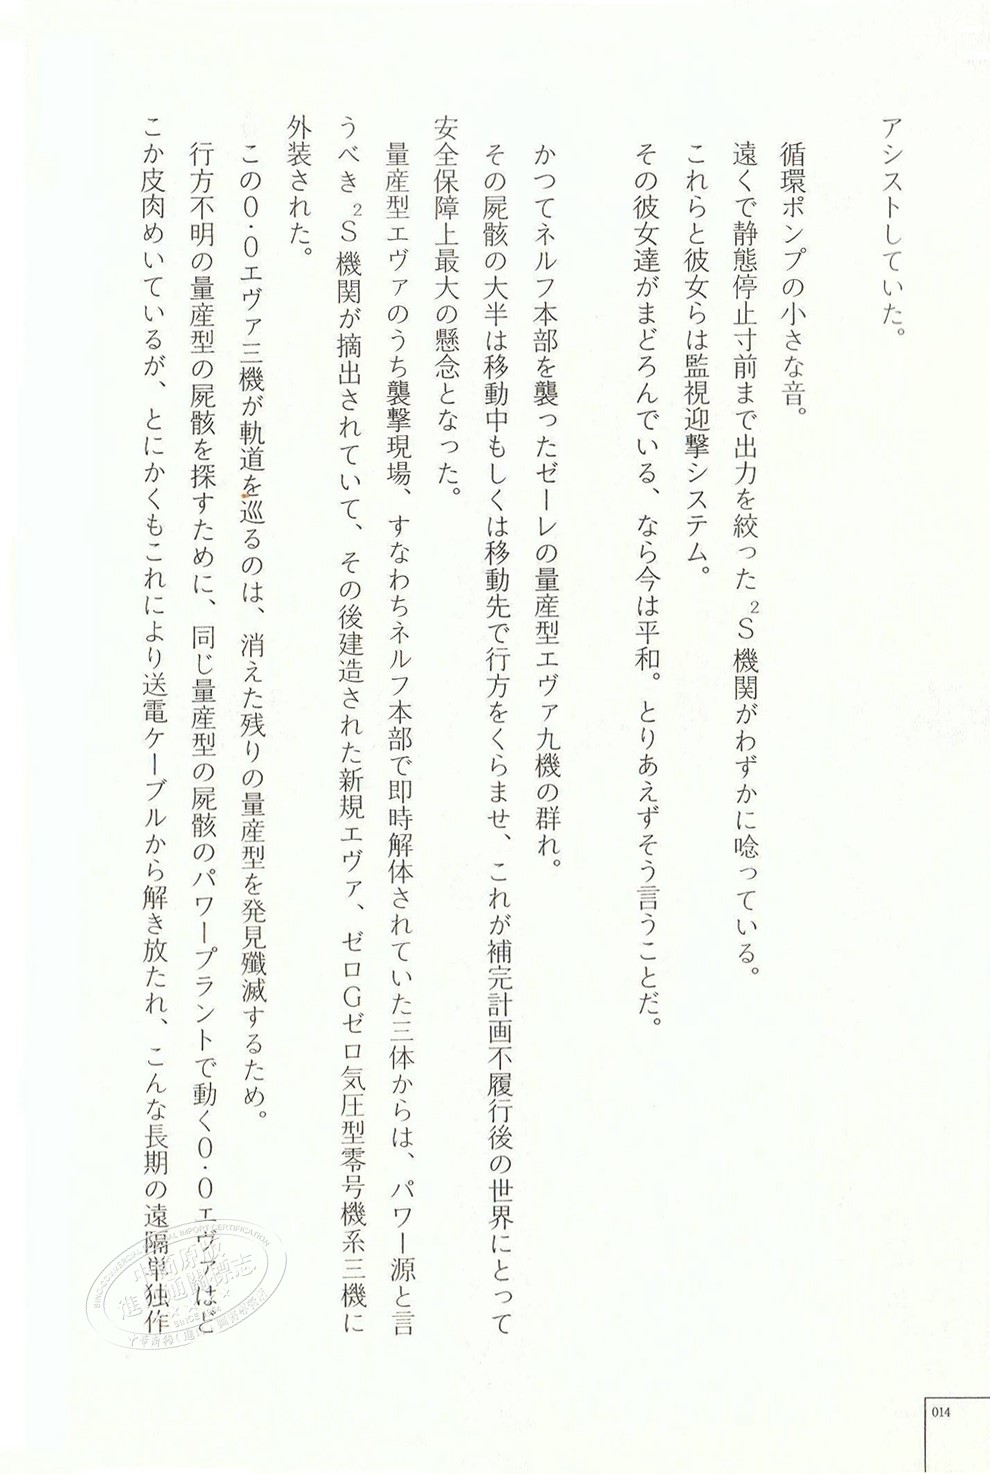 アシストしていた。
循環ポンプの小さな音。
遠くで静態停止寸前まで出力を絞ったS²機関がわずかに唸っている。
これらと彼女らは監視迎撃システム。
その彼女達がまどろんでいる、なら今は平和。とりあえずそう言うことだ。
かつてネルフ本部を襲ったゼーレの量産型エヴァ九機の群れ。
その屍骸の大半は移動中もしくは移動先で行方をくらませ、これが補完計画不履行後の世界にとって
安全保障上最大の懸念となった。
量産型エヴァのうち襲撃現場、すなわちネルフ本部で即時解体されていた三体からは、パワー源と言
うべきS²機関が摘出されていて、その後建造された新規エヴァ、ゼロGゼロ気圧型零号機系三機に
外装された。
この0・0エヴァ三機が軌道を巡るのは、消えた残りの量産型を発見殲滅するため。
行方不明の量産型の屍骸を探すために、同じ量産型の屍骸のパワープラントで動く0・0エヴァはど
こか皮肉めいているが、とにかくもこれにより送電ケーブルから解き放たれ、こんな長期の遠隔単独作
014